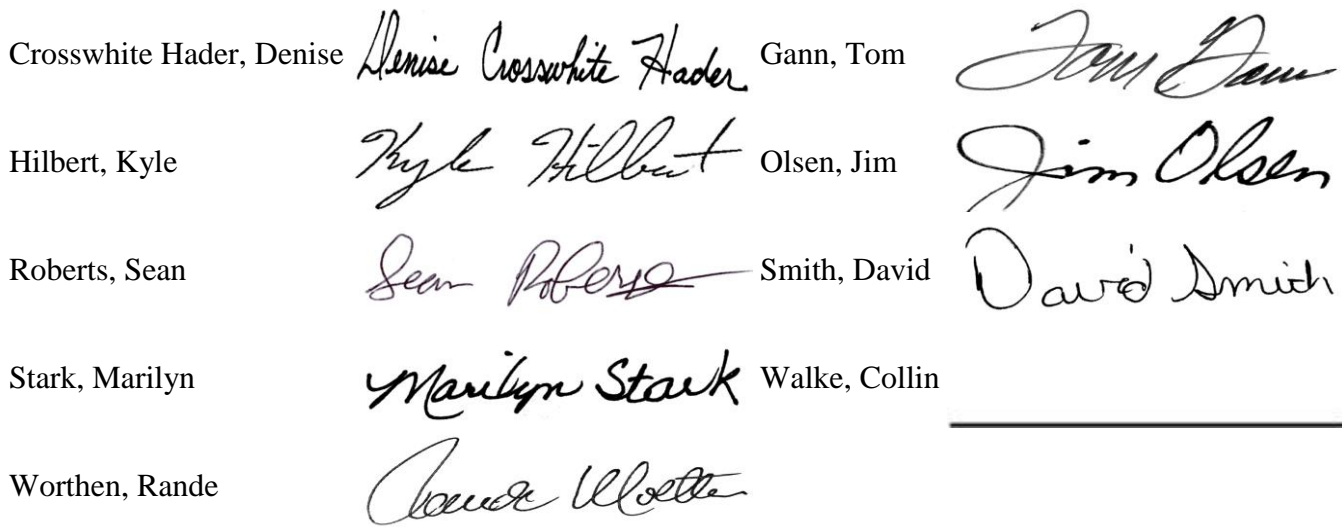 Crosswhite Hader, Denise Denise Crosswhite Hader Gann, Tom Tom Gann
Hilbert, Kyle Kyle Hilbert Olsen, Jim Jim Olsen
Roberts, Sean Sean Roberts Smith, David David Smith
Stark, Marilyn Marilyn Stark Walke, Collin
Worthen, Rande